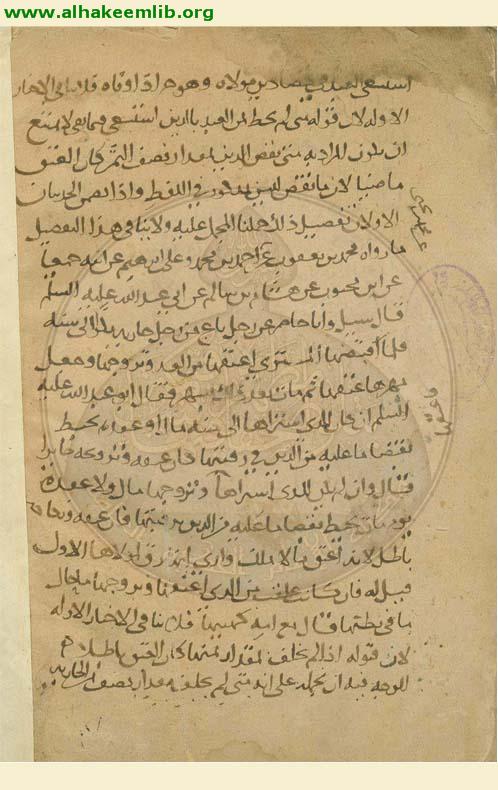 www.alhakeemlib.org
استسعى العبد في قضاء دين مولاه وهو حر اذا وفاه فلا ينافي الاخبار
الاولة لان قوله متى لم يحط ثمن العبد بالدين استسعى فيما بقي لا يمتنع
ان يكون المراد به متى نقص الدين بمقدار نصف الثمن كان العتق
ماضيا لان ما نقص ليس بمذكور في اللفظ واذا تضمن الخبران
الاولان تفصيل ذلك حملنا المجمل عليه ولا ينافي هذا التفصيل
ما رواه محمد بن يعقوب عن احمد بن محمد وعلي بن ابرهيم عن ابيه جميعا
عن ابن محبوب عن هشام بن سالم عن ابي عبد الله عليه السلم
قال سئل وانا حاضر عن رجل باع من رجل جارية بكرا الى سنة
فلما قبضها المشترى اعتقها من الغد وتزوجها وجعل
مهرها عتقها ثم مات بعد ذلك بشهر فقال ابو عبد الله عليه
السلم ان كان للذي اشتراها الى سنة مال او عقدة يحيط
بقضاء ما عليه من الدين في رقبتها فان عتقه وتزويجه جايز
قال وان لم يكن للذي اشتراها وتزوجها مال ولا عقدة
يوم مات يحيط بقضاء ما عليه من الدين برقبتها فان عتقه ونكاحه
باطل لانه اعتق ما لا يملك وارى انها رق لمولاها الاول
قيل له فان كانت علقت من الذي اعتقها وتزوجها ما حال
ما في بطنها قال مع امه كهيئتها فلا ينافي الاخبار الاولة
لان قوله اذا لم يخلف مقدار ثمنها كان العتق باطلا
الوجه فيه ان نحمله على انه متى لم يخلف مقدار نصف ثمن الجارية